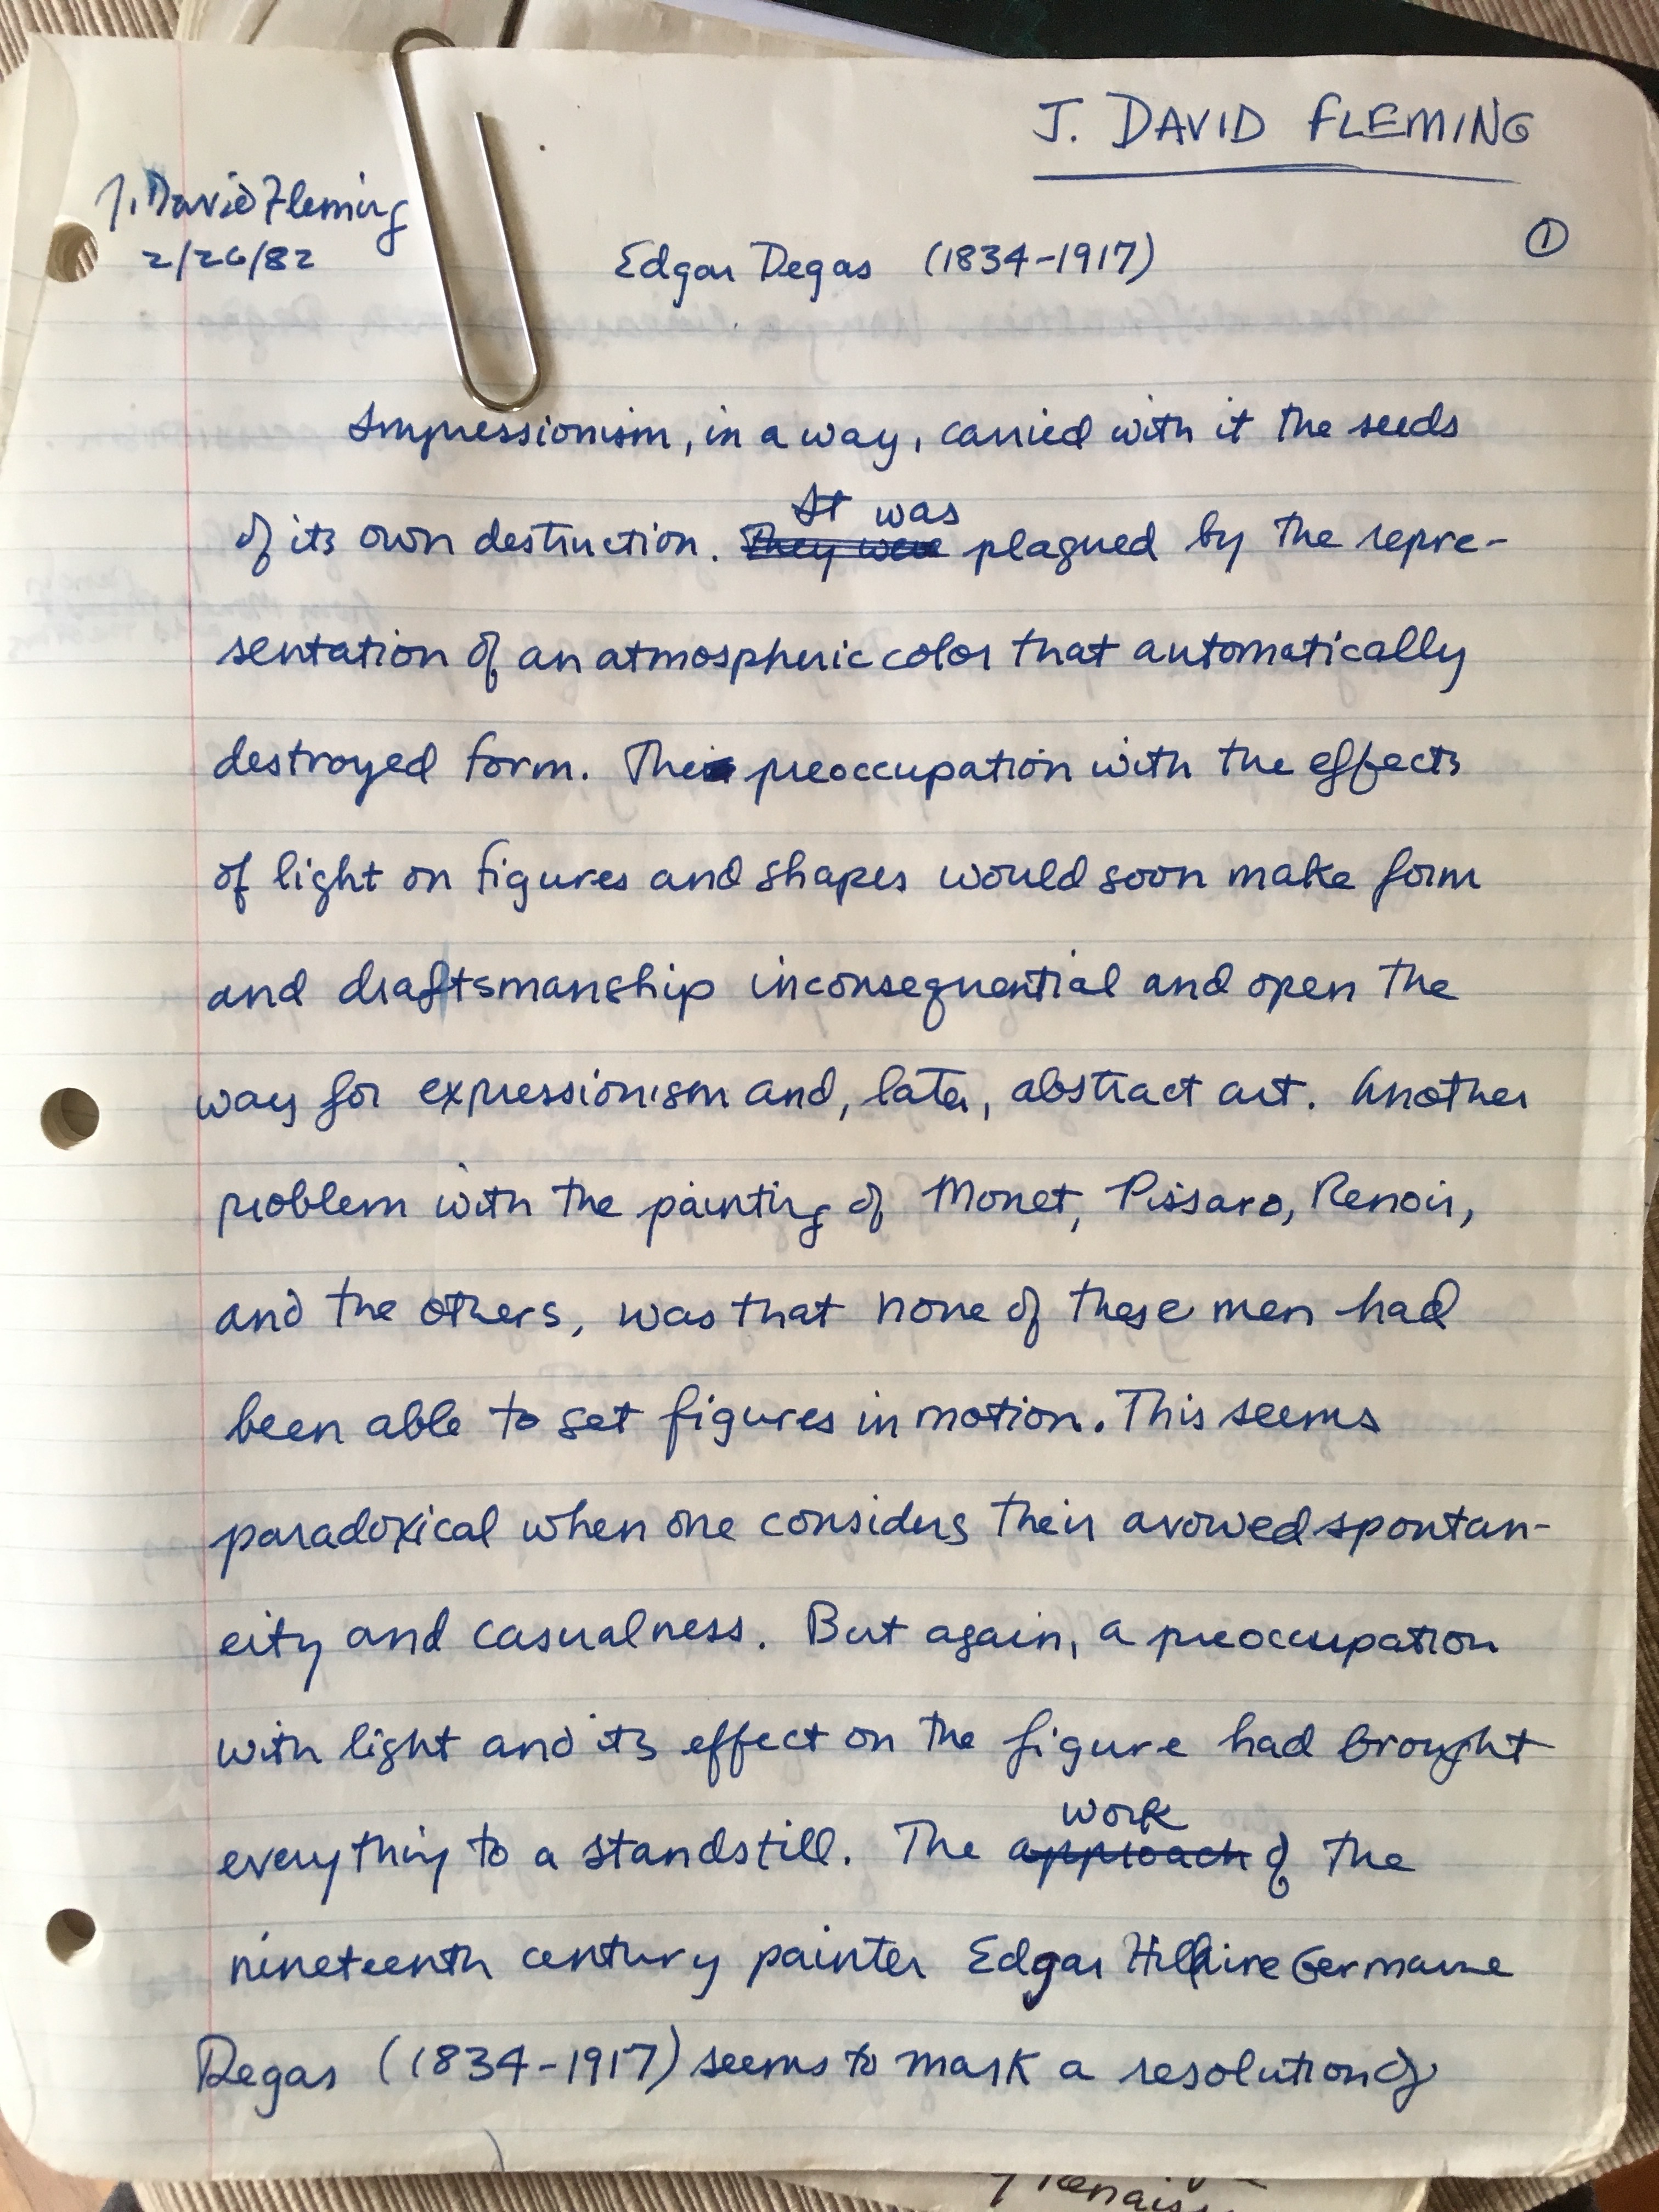 J. DAVID FLEMING
J. David Fleming
2/26/82
①
Edgar Degas (1834-1917)
Impressionism, in a way, carried with it the seeds
It was
of its own destruction. They were plagued by the repre-
sentation of an atmospheric color that automatically
destroyed form. The preoccupation with the effects
of light on figures and shapes would soon make form
and draftsmanship inconsequential and open the
way for expressionism and, later, abstract art. Another
problem with the painting of Monet, Pissaro, Renoir,
and the others, was that none of these men had
been able to set figures in motion. This seems
paradoxical when one considers their avowed spontan-
eity and casualness. But again, a preoccupation
with light and its effect on the figure had brought
work
everything to a standstill. The approach of the
nineteenth century painter Edgar Hilaire Germaine
Degas (1834-1917) seems to mark a resolution of